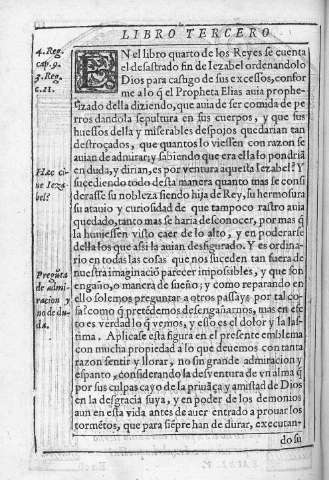 LIBRO TERCERO
4. Reg. cap. 9. 3. Reg. c. 21.
EN el libro quarto de los Reyes se cuenta
el desastrado fin de Iezabel ordenandolo
Dios para castigo de sus excessos, confor
me a lo q̃ el Propheta Elias auia prophe-
tizado della diziendo, que auia de ser comida de pe
rros dandola sepultura en sus cuerpos, y que sus
huessos della y miserables despojos quedarian tan
destroçados, que quantos lo viessen con razon se
auian de admirar; y sabiendo que era ella lo pondriã
en duda, y dirian, es por ventura aquesta Iezabel? Y
Hæc ci-
ne Ieza-
bel?
sucediendo todo desta manera quanto mas se consi
derasse su nobleza siendo hija de Rey, su hermosura
su atauio y curiosidad de que tampoco rastro auia
quedado, tanto mas se haria desconocer, por mas q̃
la huuiessen visto caer de lo alto, y en poderarse
della los que assi la auian desfigurado. Y es ordina-
rio en todas las cosas que nos suceden tan fuera de
nuestra imaginaciõ parecer impossibles, y que son
engaño, o manera de sueño; y como reparando en
ello solemos preguntar a otros passays por tal co-
Pregũta
de admi-
racion y
no de du-
da.
sa? como q̃ pretẽdemos desengañarnos, mas en efe
to es verdad lo q̃ vemos, y esso es el dolor y la las-
tima. Aplicase esta figura en el presente emblema
con mucha propiedad a lo que deuemos con tanta
razon sentir y llorar, no sin grande admiracion y
espanto, considerando la desventura de vn alma q̃
por sus culpas cayo de la priuãça y amistad de Dios
en la desgracia suya, y en poder de los demonios
aun en esta vida antes de auer entrado a prouar los
tormẽtos, que para siẽpre han de durar, executan-
do su